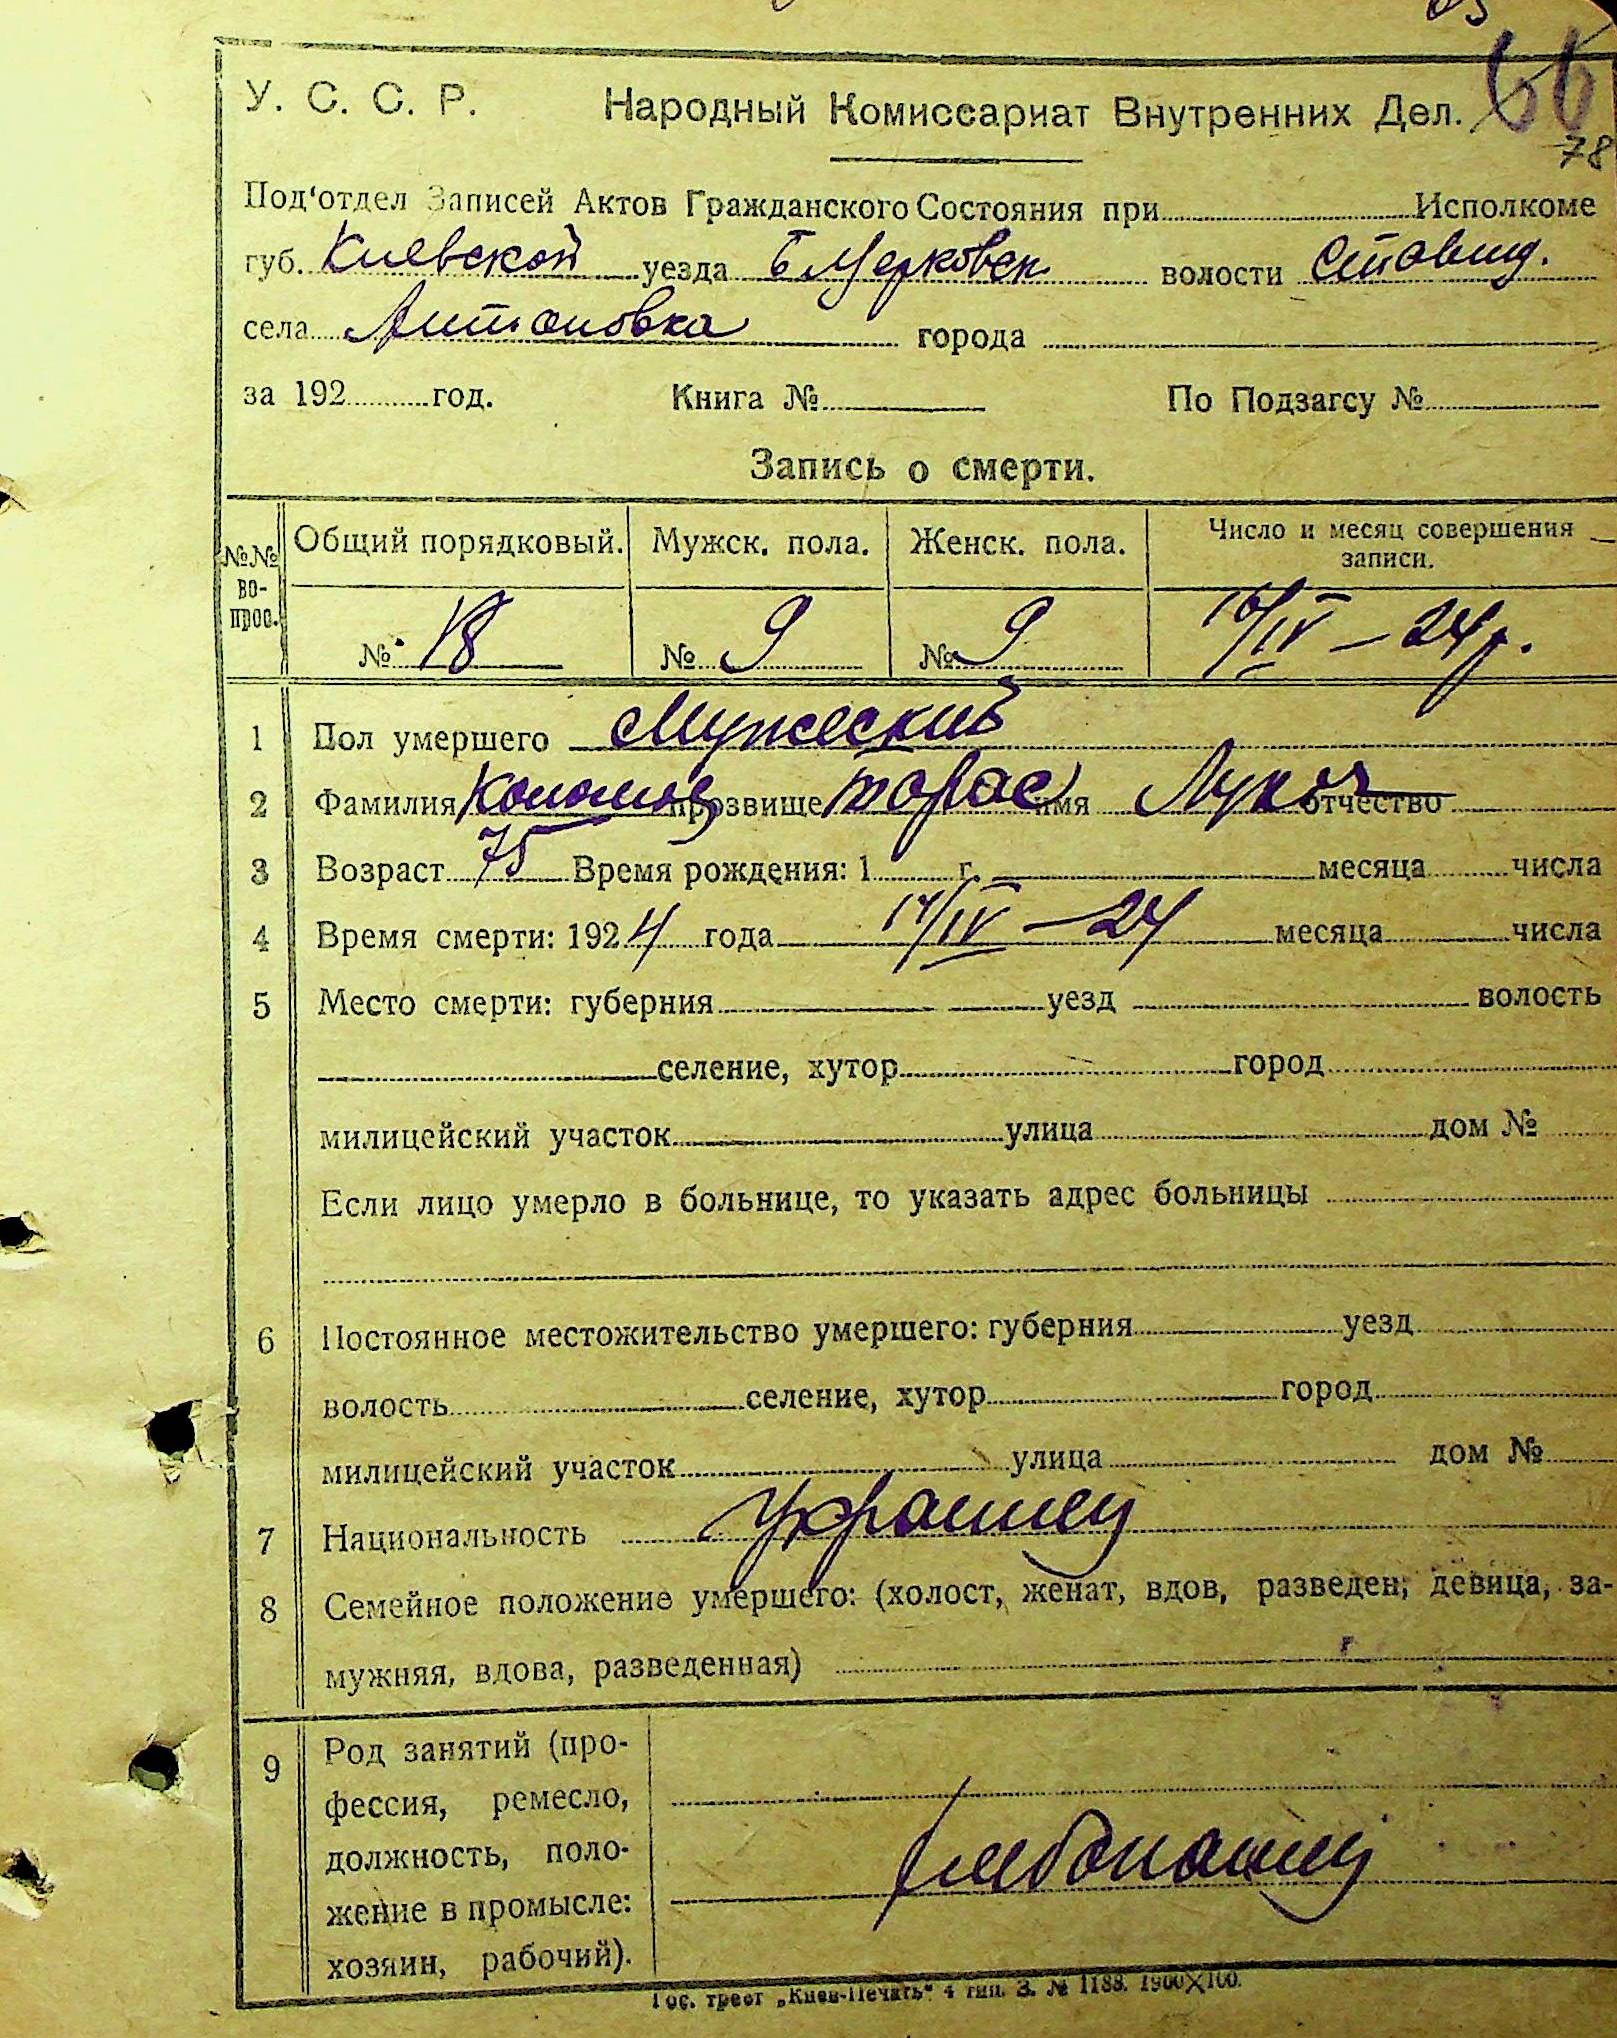 66
78
У. С. С. Р. Народный Комиссариат Внутренних Дел.
Под'отдел Записей Актов Гражданского Состояния при Исполкоме
губ. Киевской уезда Б Церковск волости Ставищ.
села Антоновка города
за 192 год. Книга № По Подзагсу №
Запись о смерти.
№№ во-прос. Общий порядковый. Мужск. пола. Женск. пола. Число и месяц совершения записи.
№ 18 № 9 № 9 16/IV – 24 р.
1 Пол умершего Мужеский
2 Фамилия прозвище Тарас имя Лукач отчество
3 Возраст 75 Время рождения: 1 г. месяца числа
4 Время смерти: 1924 года 14/IV – 24 месяца числа
5 Место смерти: губерния уезд волость
селение, хутор город
милицейский участок улица дом №
Если лицо умерло в больнице, то указать адрес больницы
6 Постоянное местожительство умершего: губерния уезд
волость селение, хутор город
милицейский участок улица дом №
7 Национальность Украинец
8 Семейное положение умершего: (холост, женат, вдов, разведен, девица, за-
мужняя, вдова, разведенная)
9 Род занятий (про-
фессия, ремесло,
должность, поло-
жение в промысле:
хозяин, рабочий).
Хлебопашец
Гос. трест „Киев-Печать" 4 тип. З. № 1188. 1900×100.